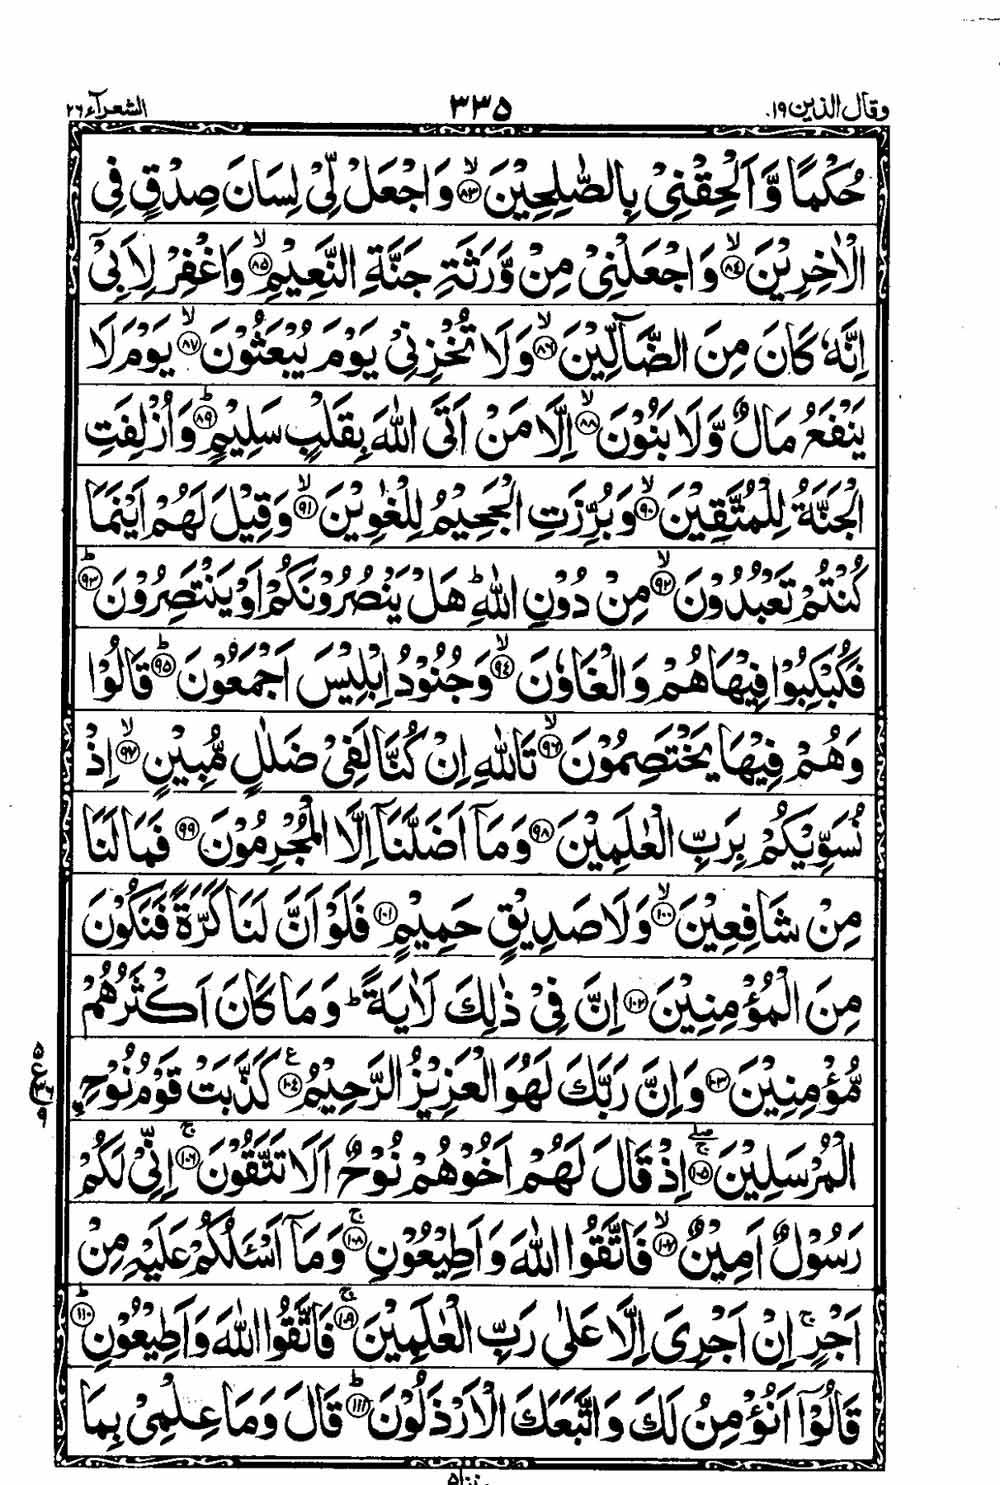 وقال الذين ١٩ ٣٣٥ الشعرآء ٢٦
حُكْمًا وَّ اَلْحِقْنِیْ بِالصّٰلِحِیْنَ ﴿۸۳﴾ۙ وَ اجْعَلْ لِّیْ لِسَانَ صِدْقٍ فِی
الْاٰخِرِیْنَ ﴿۸۴﴾ۙ وَ اجْعَلْنِیْ مِنْ وَّرَثَةِ جَنَّةِ النَّعِیْمِ ﴿۸۵﴾ۙ وَ اغْفِرْ لِاَبِیْۤ
اِنَّهٗ كَانَ مِنَ الضَّآلِّیْنَ ﴿۸۶﴾ۙ وَ لَا تُخْزِنِیْ یَوْمَ یُبْعَثُوْنَ ﴿۸۷﴾ۙ یَوْمَ لَا
یَنْفَعُ مَالٌ وَّ لَا بَنُوْنَ ﴿۸۸﴾ۙ اِلَّا مَنْ اَتَی اللّٰهَ بِقَلْبٍ سَلِیْمٍ ﴿۸۹﴾ؕ وَ اُزْلِفَتِ
الْجَنَّةُ لِلْمُتَّقِیْنَ ﴿۹۰﴾ۙ وَ بُرِّزَتِ الْجَحِیْمُ لِلْغٰوِیْنَ ﴿۹۱﴾ۙ وَ قِیْلَ لَهُمْ اَیْنَمَا
كُنْتُمْ تَعْبُدُوْنَ ﴿۹۲﴾ۙ مِنْ دُوْنِ اللّٰهِ ؕ هَلْ یَنْصُرُوْنَكُمْ اَوْ یَنْتَصِرُوْنَ ﴿۹۳﴾ؕ
فَكُبْكِبُوْا فِیْهَا هُمْ وَ الْغَاوٗنَ ﴿۹۴﴾ۙ وَ جُنُوْدُ اِبْلِیْسَ اَجْمَعُوْنَ ﴿۹۵﴾ؕ قَالُوْا
وَ هُمْ فِیْهَا یَخْتَصِمُوْنَ ﴿۹۶﴾ۙ تَاللّٰهِ اِنْ كُنَّا لَفِیْ ضَلٰلٍ مُّبِیْنٍ ﴿۹۷﴾ۙ اِذْ
نُسَوِّیْكُمْ بِرَبِّ الْعٰلَمِیْنَ ﴿۹۸﴾ وَ مَاۤ اَضَلَّنَاۤ اِلَّا الْمُجْرِمُوْنَ ﴿۹۹﴾ فَمَا لَنَا
مِنْ شَافِعِیْنَ ﴿۱۰۰﴾ۙ وَ لَا صَدِیْقٍ حَمِیْمٍ ﴿۱۰۱﴾ فَلَوْ اَنَّ لَنَا كَرَّةً فَنَكُوْنَ
مِنَ الْمُؤْمِنِیْنَ ﴿۱۰۲﴾ اِنَّ فِیْ ذٰلِكَ لَاٰیَةً ؕ وَ مَا كَانَ اَكْثَرُهُمْ
مُّؤْمِنِیْنَ ﴿۱۰۳﴾ وَ اِنَّ رَبَّكَ لَهُوَ الْعَزِیْزُ الرَّحِیْمُ ﴿۱۰۴﴾ع كَذَّبَتْ قَوْمُ نُوْحِ
الْمُرْسَلِیْنَ ﴿۱۰۵﴾ۚۖ اِذْ قَالَ لَهُمْ اَخُوْهُمْ نُوْحٌ اَلَا تَتَّقُوْنَ ﴿۱۰۶﴾ۚ اِنِّیْ لَكُمْ
رَسُوْلٌ اَمِیْنٌ ﴿۱۰۷﴾ۙ فَاتَّقُوا اللّٰهَ وَ اَطِیْعُوْنِ ﴿۱۰۸﴾ۚ وَ مَاۤ اَسْـَٔلُكُمْ عَلَیْهِ مِنْ
اَجْرٍ ۚ اِنْ اَجْرِیَ اِلَّا عَلٰی رَبِّ الْعٰلَمِیْنَ ﴿۱۰۹﴾ۚ فَاتَّقُوا اللّٰهَ وَ اَطِیْعُوْنِ ﴿۱۱۰﴾ؕ
قَالُوْۤا اَنُؤْمِنُ لَكَ وَ اتَّبَعَكَ الْاَرْذَلُوْنَ ﴿۱۱۱﴾ؕ قَالَ وَ مَا عِلْمِیْ بِمَا